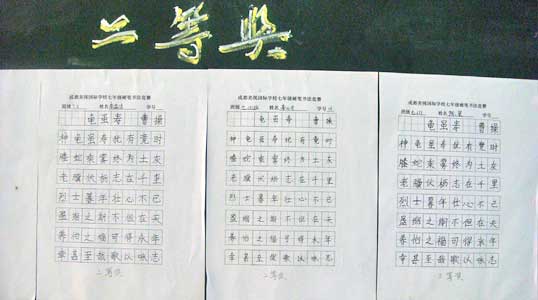 二等奖
成都美视国际学校七年级硬笔书法竞赛
班级 姓名 学号
龟虽寿 曹操
神龟虽寿犹有竟时
腾蛇乘雾终为土灰
老骥伏枥志在千里
烈士暮年壮心不已
盈缩之期不但在天
养怡之福可得永年
幸甚至哉歌以咏志
二等奖
成都美视国际学校七年级硬笔书法竞赛
班级 姓名 学号
龟虽寿 曹操
神龟虽寿犹有竟时
腾蛇乘雾终为土灰
老骥伏枥志在千里
烈士暮年壮心不已
盈缩之期不但在天
养怡之福可得永年
幸甚至哉歌以咏志
二等奖
成都美视国际学校七年级硬笔书法竞赛
班级 姓名 学号
龟虽寿 曹操
神龟虽寿犹有竟时
腾蛇乘雾终为土灰
老骥伏枥志在千里
烈士暮年壮心不已
盈缩之期不但在天
养怡之福可得永年
幸甚至哉歌以咏志
二等奖